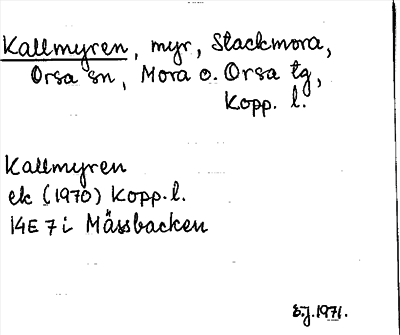 Kallmyren, myr, Stackmora,
Orsa sn, Mora o. Orsa tg,
Kopp. l.
Kallmyren
ek (1970) Kopp. l.
14E 7i Mässbacken
E.J. 1971.